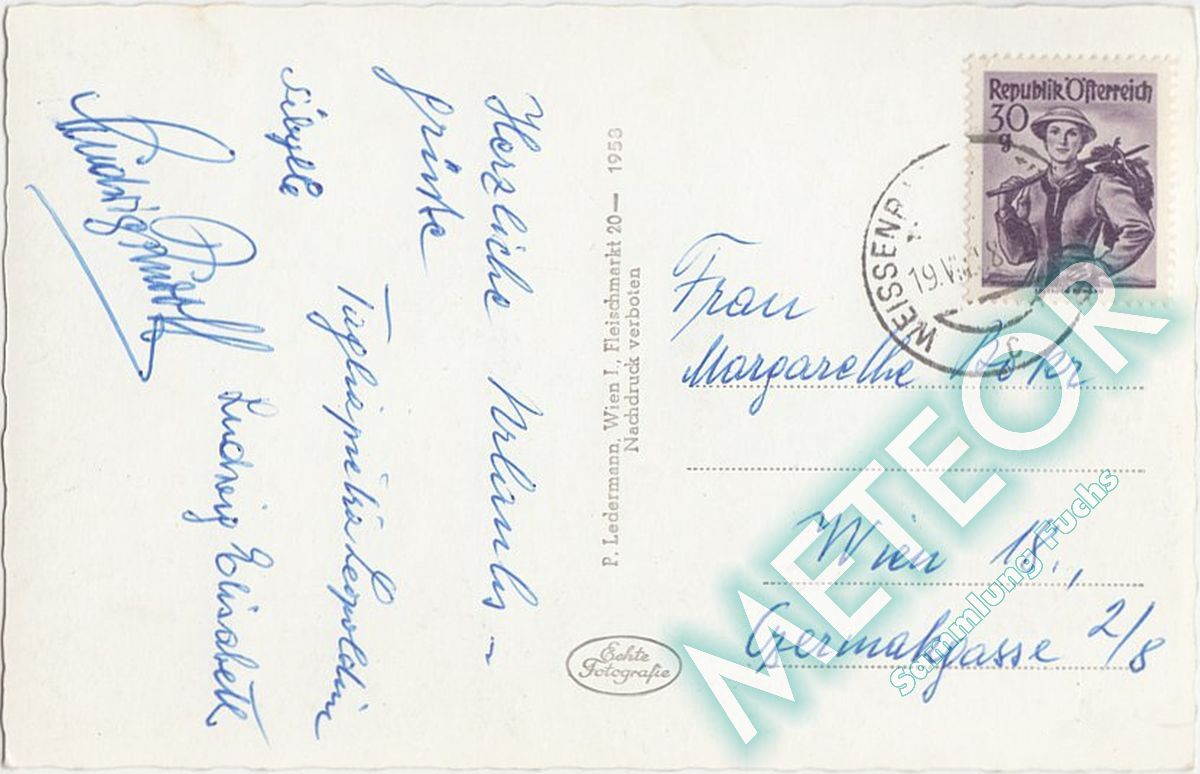 Herzliche Urlaubs-
grüße
Sibylle
Leopoldin
Ludwig Elisabeth
Ludwig
P. Ledermann, Wien I., Fleischmarkt 20— 1953
Nachdruck verboten
Echte
Fotografie
Republik Österreich
30
g
WEISSEN
19.VI
8
Frau
Margarethe
Wien 18.,
2/8
METEOR
Sammlung Fuchs